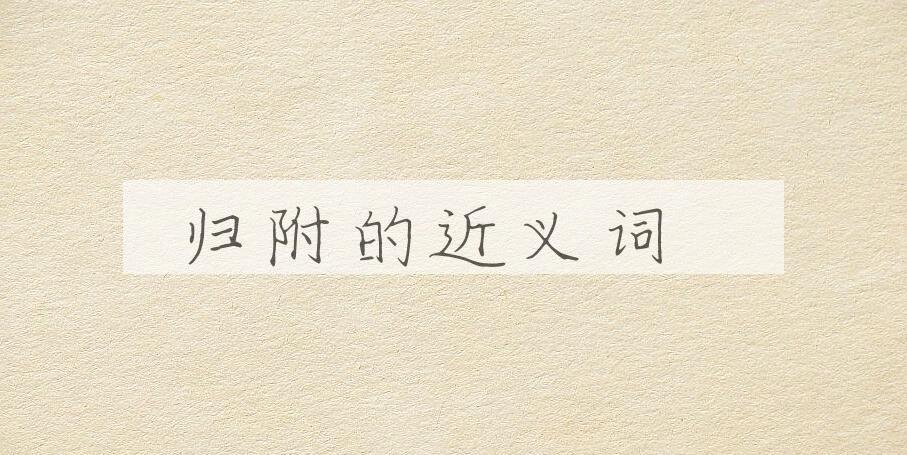 归附的近义词